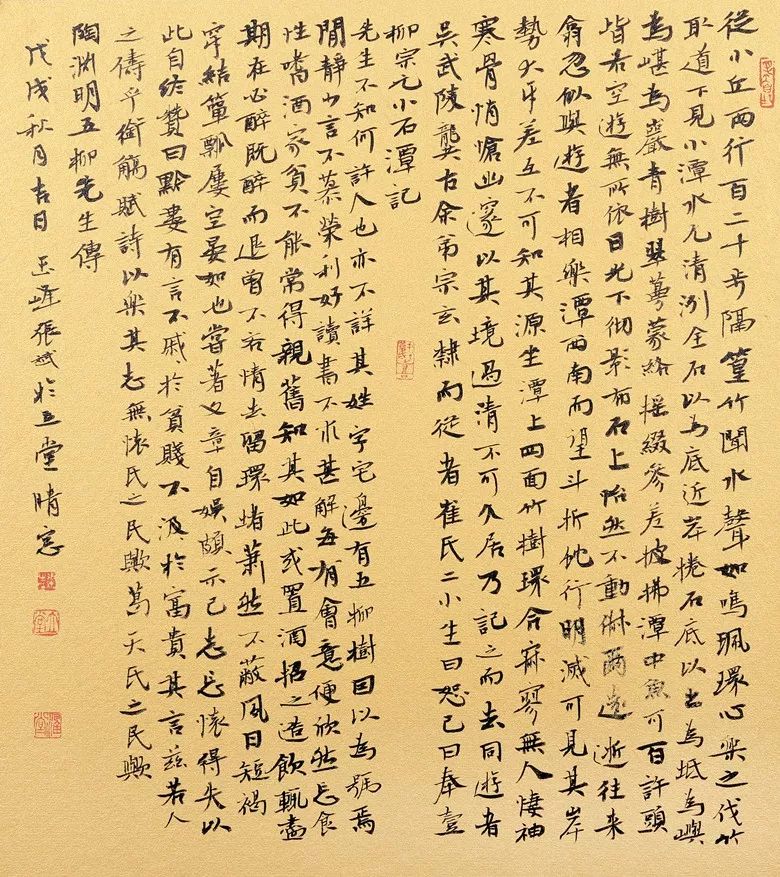 從小丘西行百二十步隔篁竹聞水聲如鳴珮環心樂之伐竹
取道下見小潭水尤清冽全石以為底近岸捲石底以出為坻為嶼
為嵁為巖青樹翠蔓蒙絡搖綴參差披拂潭中魚可百許頭
皆若空遊無所依日光下徹影布石上怡然不動俶爾遠逝往来
翕忽似與遊者相樂潭西南而望斗折蛇行明滅可見其岸
勢犬牙差互不可知其源坐潭上四面竹樹環合寂寥無人悽神
寒骨悄愴幽邃以其境過清不可久居乃記之而去同遊者
吳武陵龔古余弟宗玄隸而從者崔氏二小生曰恕己曰奉壹
柳宗元小石潭記
先生不知何許人也亦不詳其姓字宅邊有五柳樹因以為號焉
閒靜少言不慕榮利好讀書不求甚解每有會意便欣然忘食
性嗜酒家貧不能常得親舊知其如此或置酒招之造飲輒盡
期在必醉既醉而退曾不吝情去留環堵蕭然不蔽風日短褐
穿結簞瓢屢空晏如也嘗著文章自娛頗示己志忘懷得失以
此自終贊曰黔婁有言不戚於貧賤不汲於富貴其言茲若人
之儔乎銜觴賦詩以樂其志無懷氏之民歟葛天氏之民歟
陶淵明五柳先生傳
戊戌秋月吉日 玉峰張斌於 堂晴窓